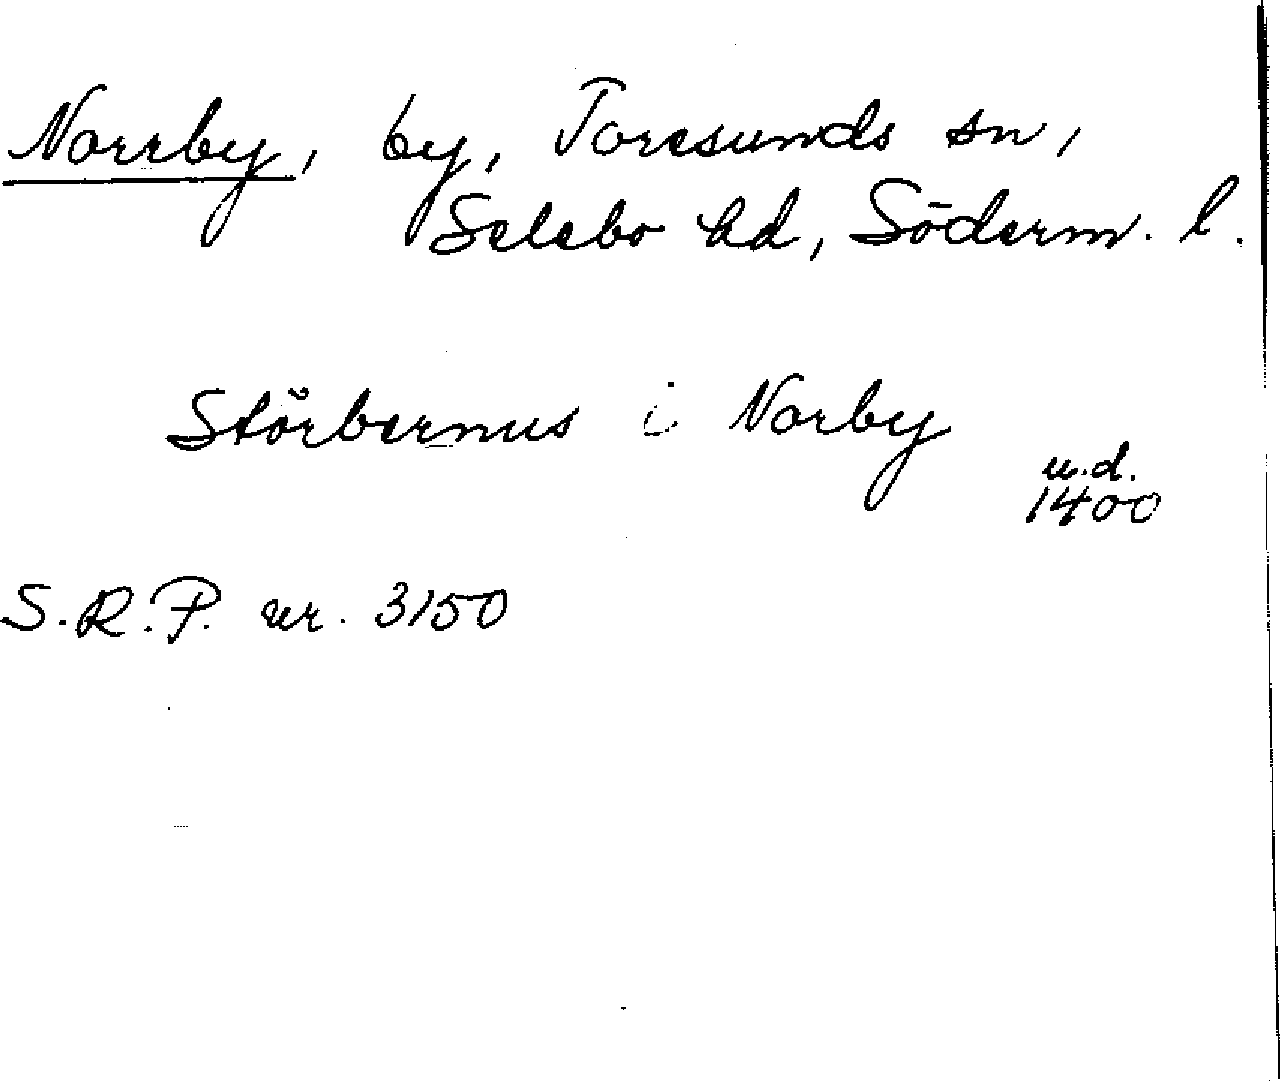 Norrby, by, Toresunds sn,
Selebo hd, Söderm. l.
Störbernus i Norby
u.d.
1400
S.R.P. nr. 3150